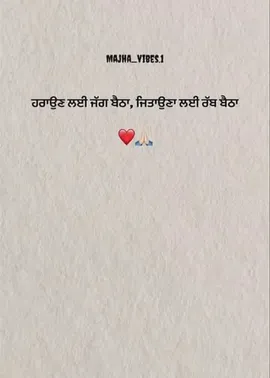 MAJHA_VIBES.1
ਹਰਾਉਣ ਲਈ ਜੱਗ ਬੈਠਾ, ਜਿਤਾਉਣਾ ਲਈ ਰੱਬ ਬੈਠਾ
❤️🙏🏻